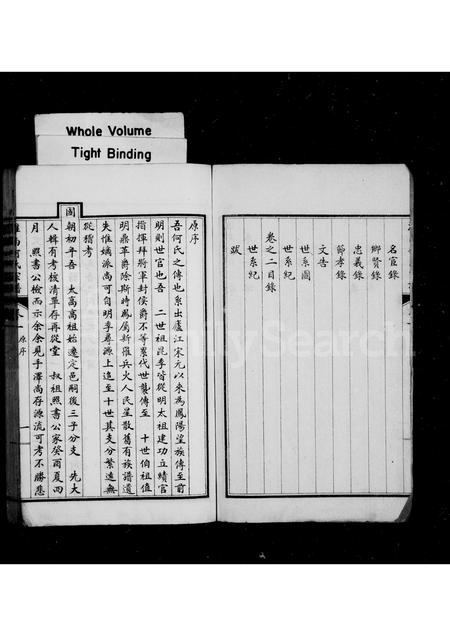 Whole Volume
Tight Binding
名宦錄
鄉賢錄
忠義錄
節孝錄
文告
世系圖
世系紀
卷之二目錄
世系紀
跋
原序
吾何氏之傳也系出廬江宋元以來為鳳陽望族傳至前
明則世官也吾 二世祖昆季皆從明太祖建功立績官
指揮拜將軍封侯爵不等累代世襲傳至 十世伯祖值
明鼎革爵除斯時鳳屬新罹兵火人民星散舊有族譜遺
失惟嫡派尚可自明季尋源上追至十世其支分繁遠無
從稽考
國朝初年吾 太高高祖始遷定邑嗣後三子分支 先大
人輯有考核清單存再從堂 叔祖照書公家癸酉夏四
月 照書公檢而示余余見手澤尚存源流可考不勝忍
何氏宗譜 卷一 原序 一
FamilySearch